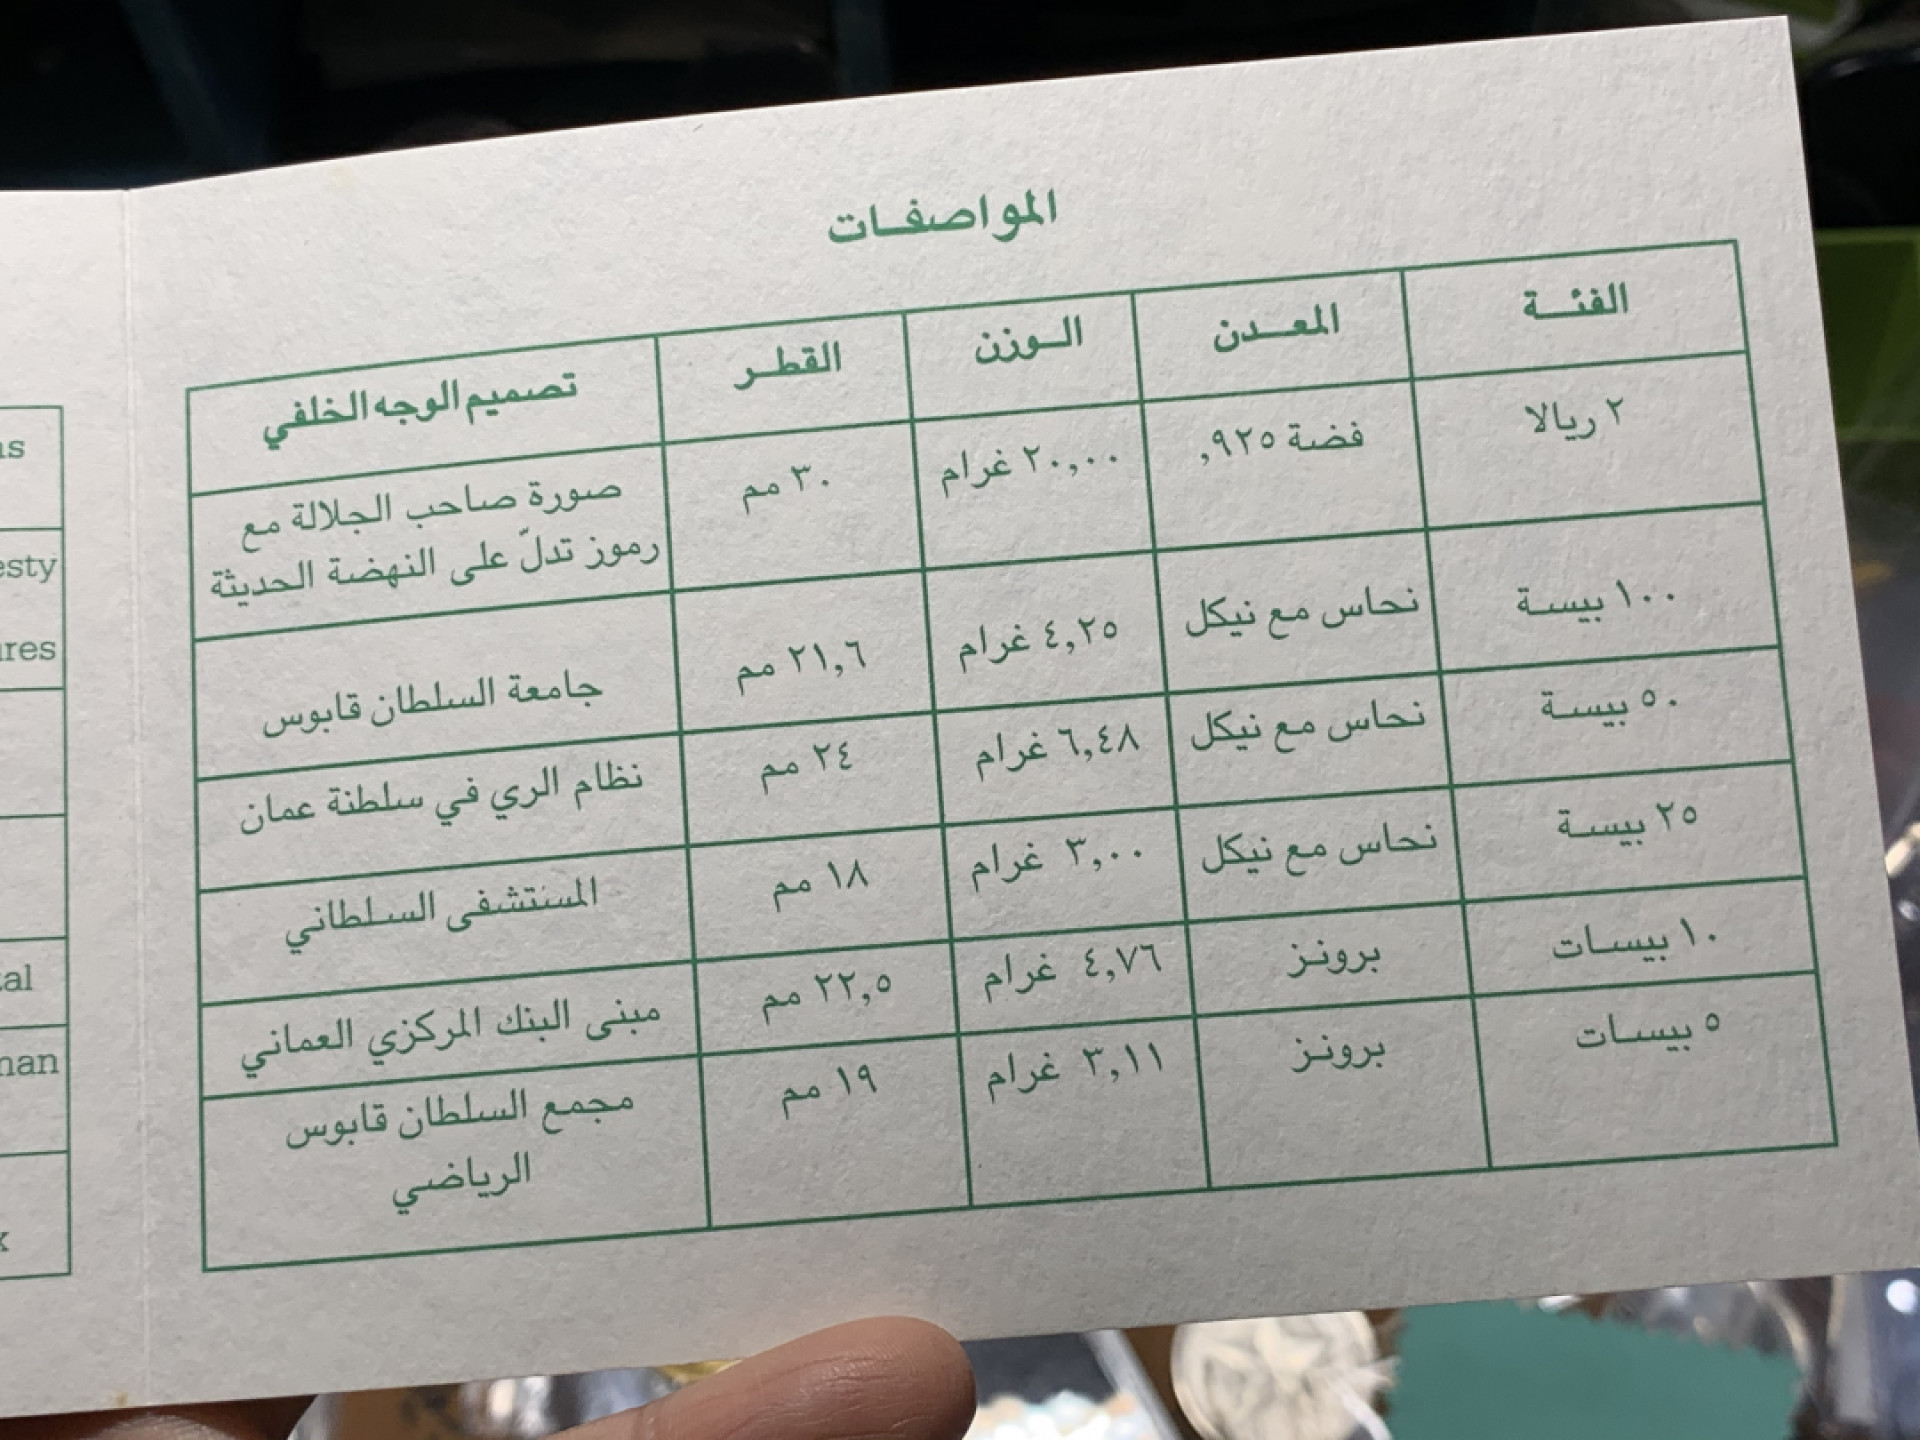 المواصفات
الفئة المعدن الوزن القطر تصميم الوجه الخلفي
٢ ريالا فضة ٩٢٥, ٢٠,٠٠ غرام ٣٠ مم صورة صاحب الجلالة مع
رموز تدلّ على النهضة الحديثة
١٠٠ بيسة نحاس مع نيكل ٤,٢٥ غرام ٢١,٦ مم جامعة السلطان قابوس
٥٠ بيسة نحاس مع نيكل ٦,٤٨ غرام ٢٤ مم نظام الري في سلطنة عمان
٢٥ بيسة نحاس مع نيكل ٣,٠٠ غرام ١٨ مم المستشفى السلطاني
١٠ بيسات برونز ٤,٧٦ غرام ٢٢,٥ مم مبنى البنك المركزي العماني
٥ بيسات برونز ٣,١١ غرام ١٩ مم مجمع السلطان قابوس
الرياضي